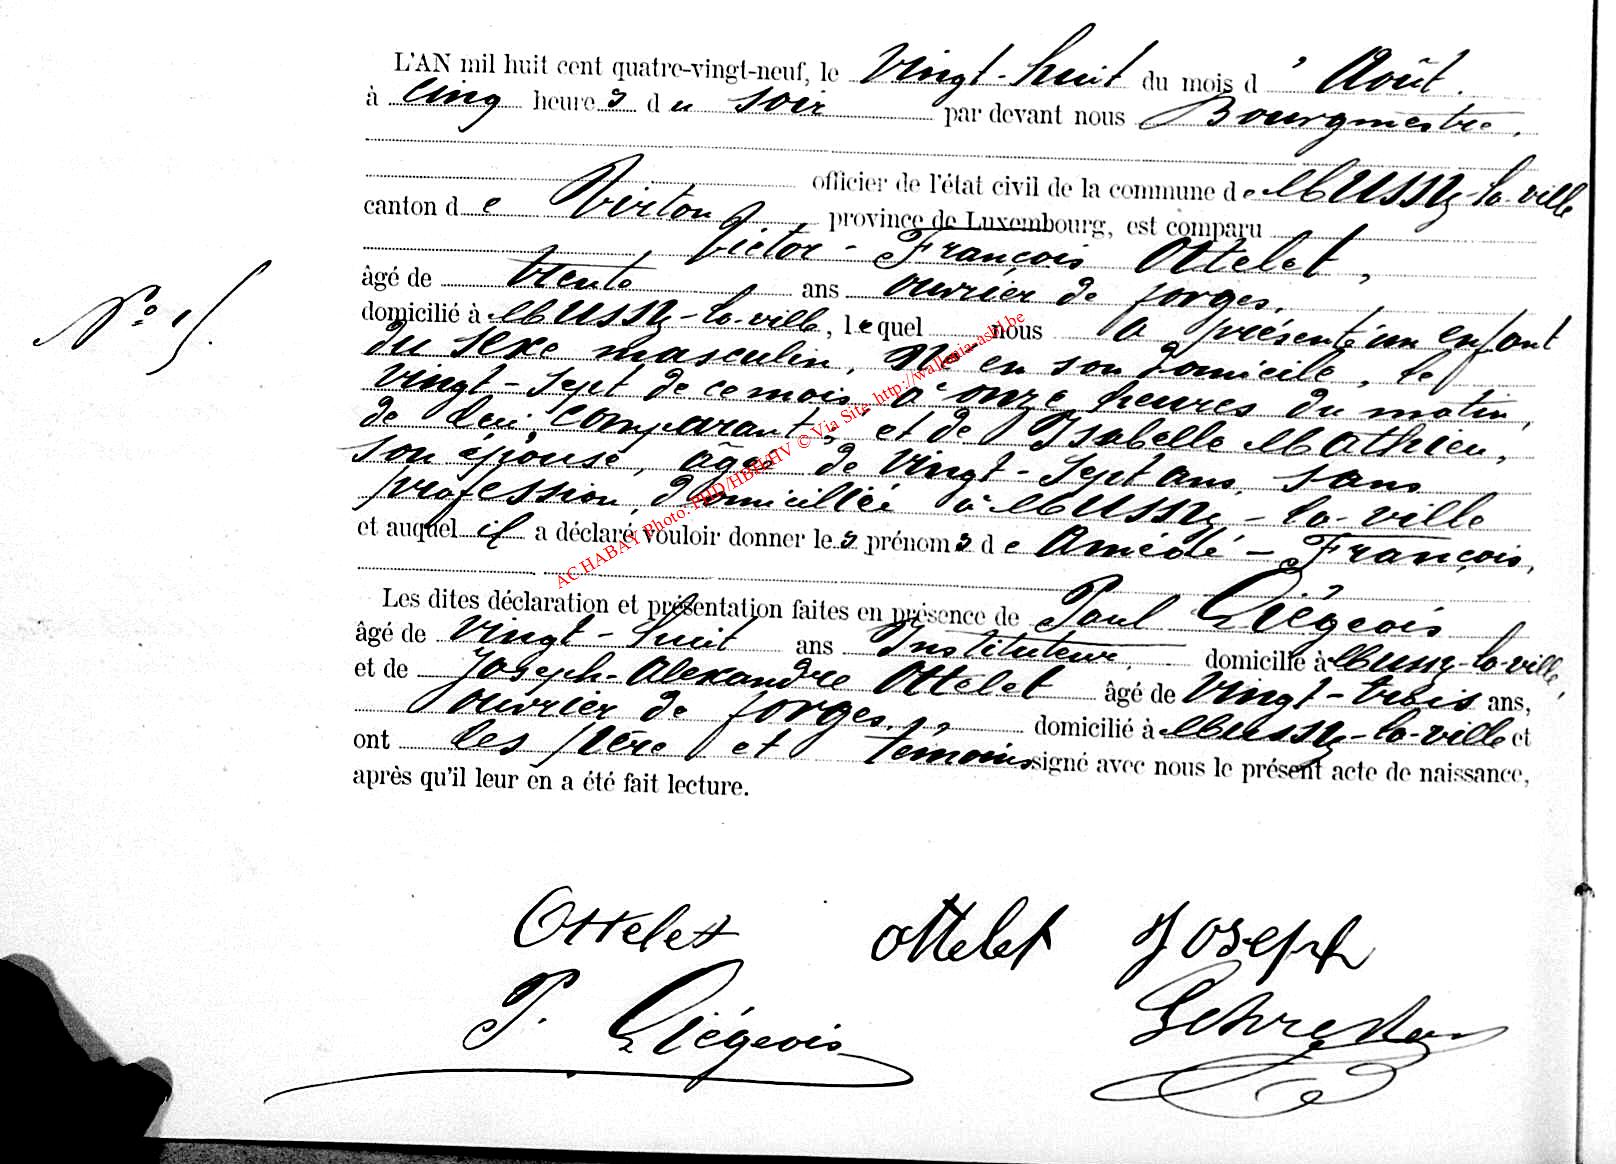 L'AN mil huit cent quatre-vingt-neuf, le vingt-huit du mois d' Août.
à cinq heures du soir par devant nous Bourgmestre,
officier de l'état civil de la commune de Mussy-la-ville
canton de Virton province de Luxembourg, est comparu
Victor-François Ottelet,
âgé de trente ans ouvrier de forges,
domicilié à Mussy-la-ville, lequel nous a présenté un enfant
N° 15.
du sexe masculin, Né en son domicile, le
vingt-sept de ce mois, à onze heures du matin,
de lui, comparant, et de Isabelle Mathieu,
son épouse, âgée de vingt-sept ans, sans
profession, domiciliée à Mussy-la-ville
et auquel il a déclaré vouloir donner les prénoms de Amédé-François,
Les dites déclaration et présentation faites en présence de Paul Liégeois
âgé de vingt-huit ans Instituteur, domicilié à Mussy-la-ville,
et de Joseph-Alexandre Ottelet âgé de vingt-trois ans,
ouvrier de forges, domicilié à Mussy-la-ville et
ont les père et témoins signé avec nous le présent acte de naissance,
après qu'il leur en a été fait lecture.
Ottelet ottelet Joseph
P. Liégeois
AC HABAY Photo: PHD/HBH/HV © Via Site http://wallonia-asbl.be